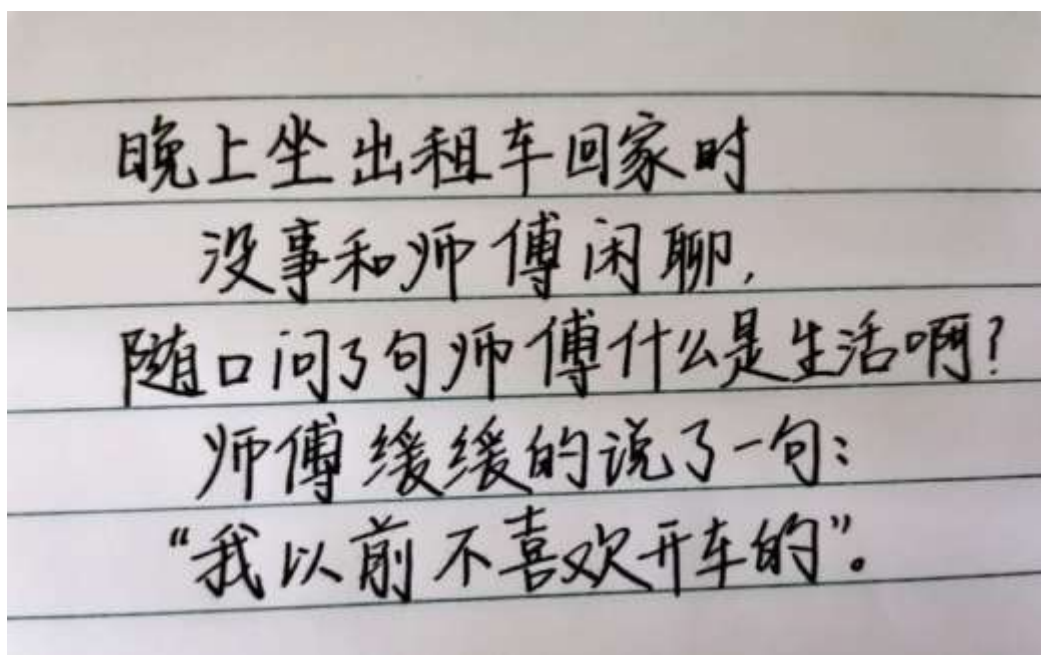 晚上坐出租车回家时
没事和师傅闲聊,
随口问了句师傅什么是生活啊?
师傅缓缓的说了一句:
“我以前不喜欢开车的”。